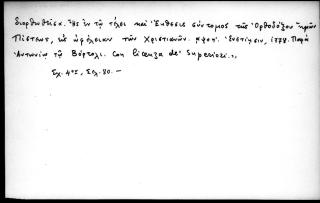 διορθωθεῖσα. Ἧς ἐν τῷ τέλει καὶ Ἔκθεσις σύντομος τῆς Ὀρθοδόξου ἡμῶν
Πίστεως, εἰς ὠφέλειαν τῶν Χριστιανῶν. ͵αψοη´. Ἐνετίησιν, 1778. Παρὰ
Ἀντωνίῳ τῷ Βόρτολι. Con licenza de' Superiori.»
Σχ. 4ον, Σελ. 80.—